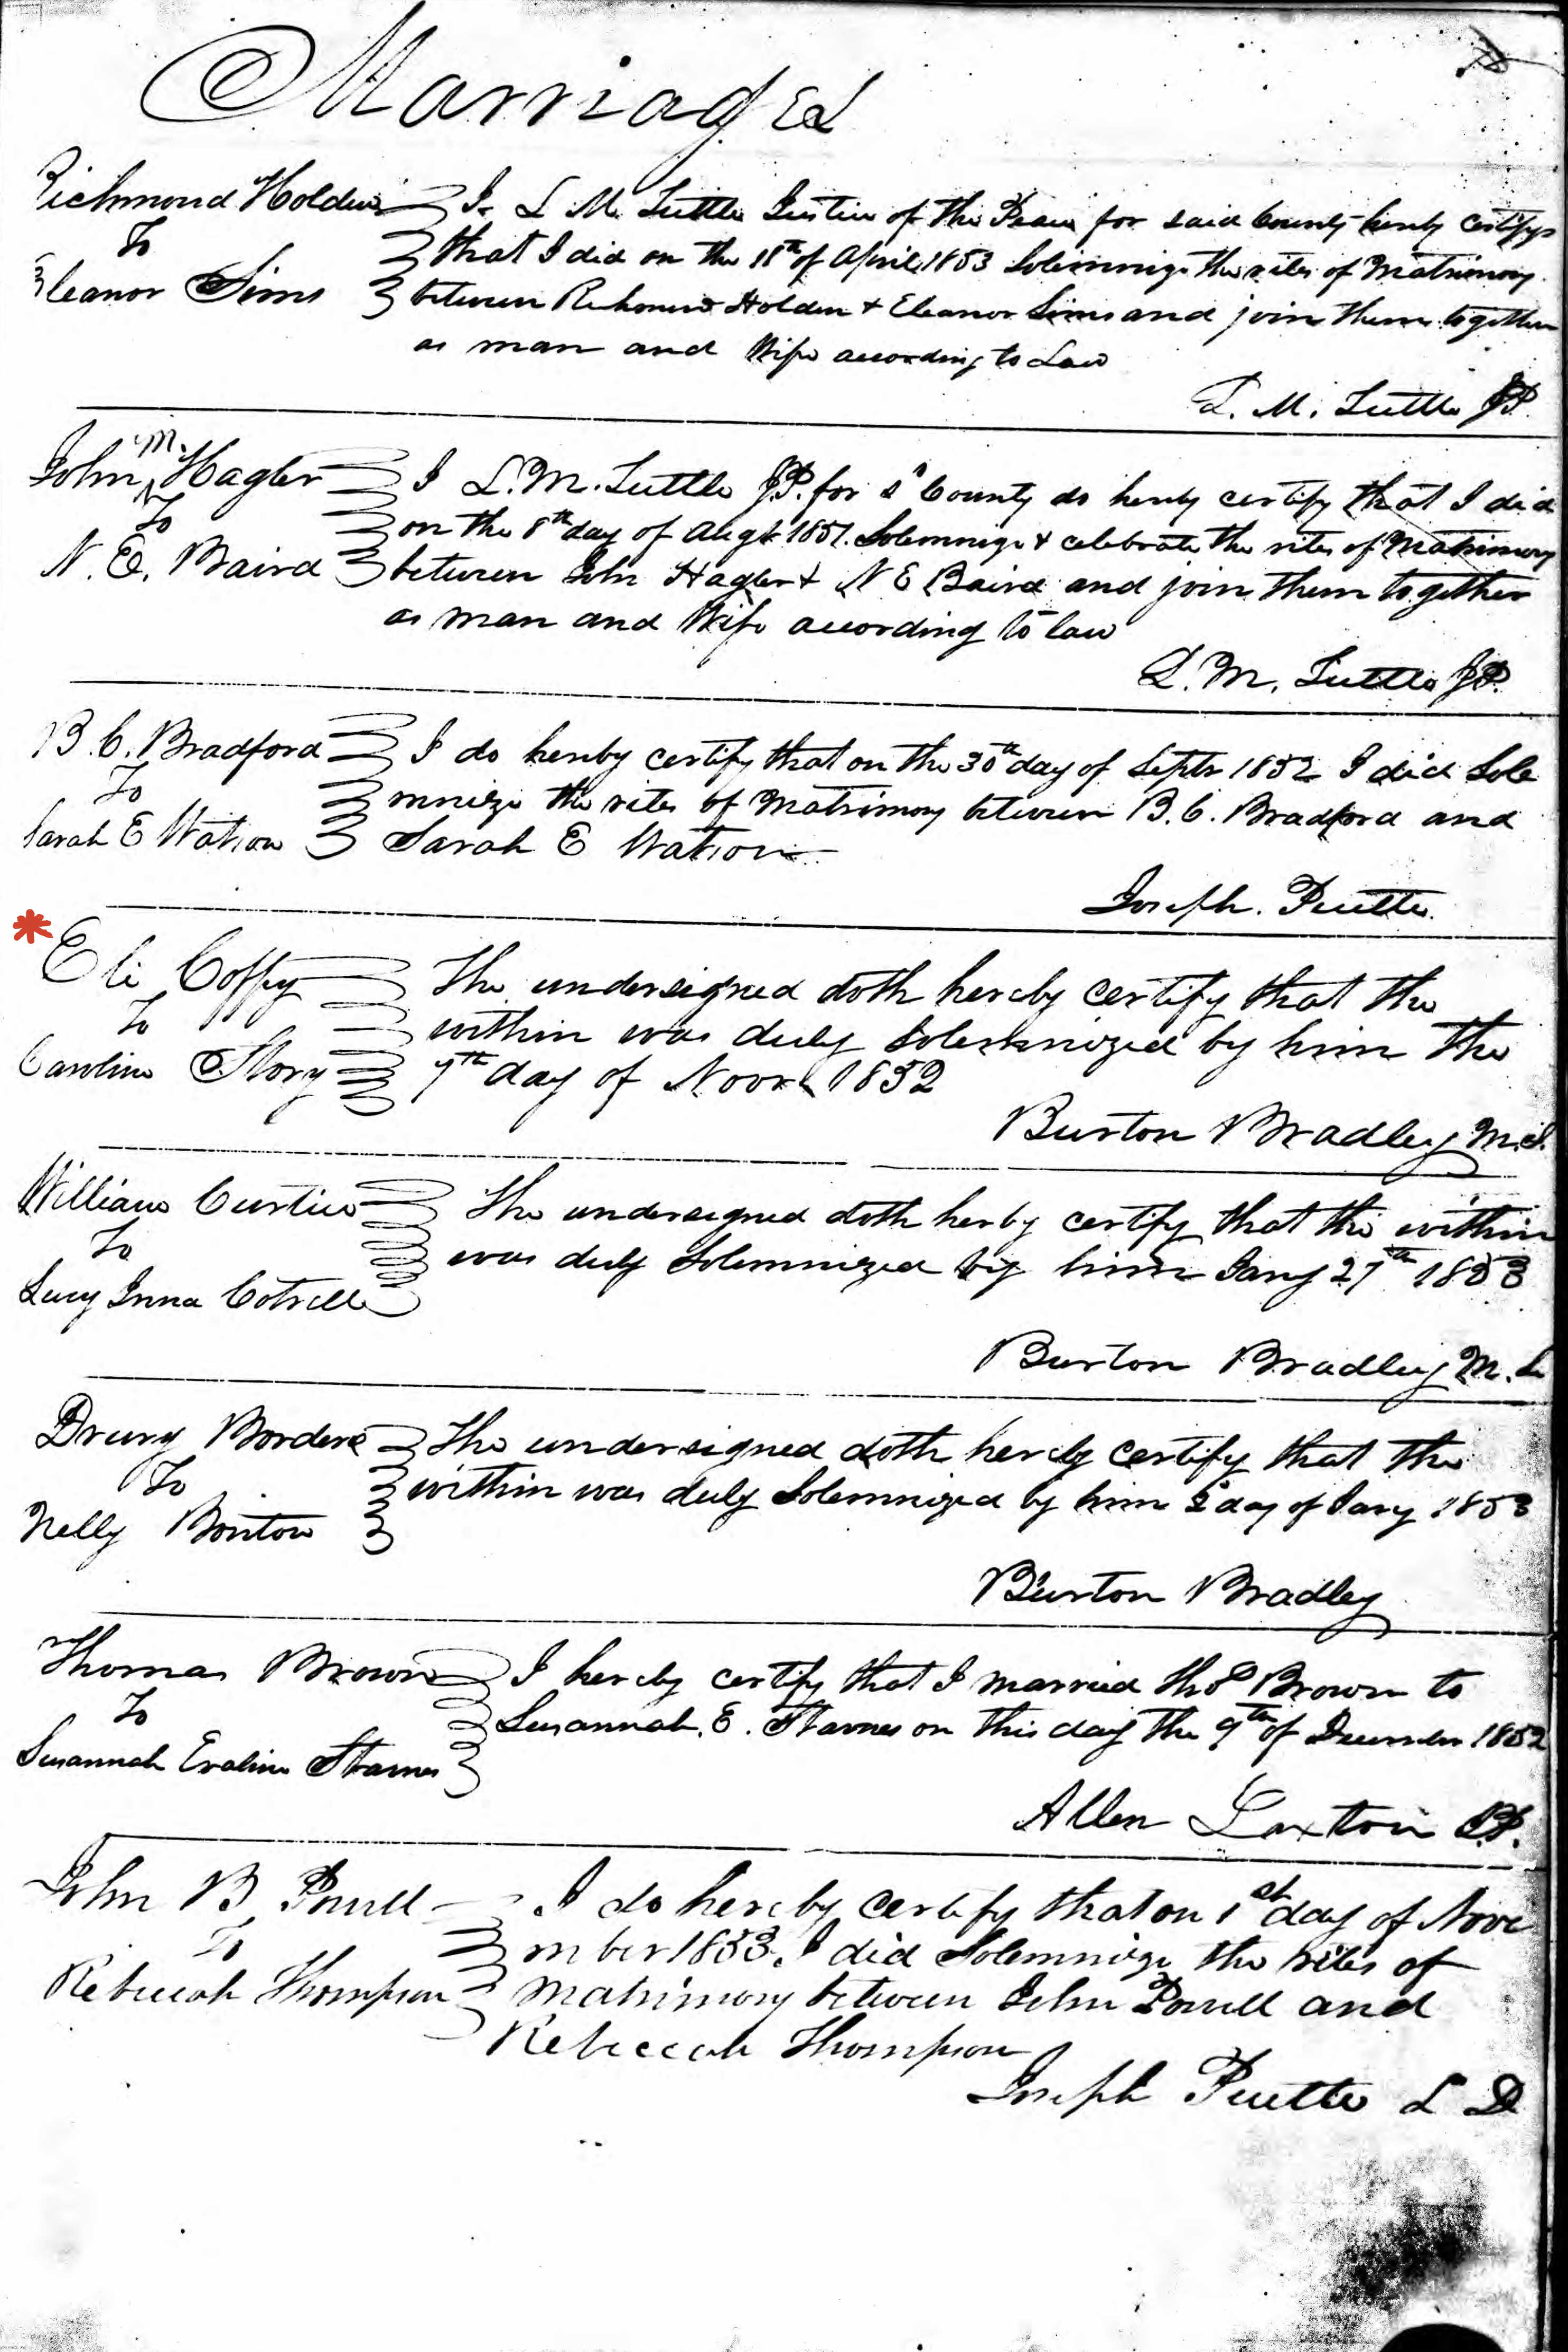 Marriages
Richmond Holden
To
Eleanor Sims
I L M. Tuttle Justice of the Peace for said County hereby certify
that I did on the 18th of April 1853 Solemnize the rites of Matrimony
between Richmond Holden + Eleanor Sims and join them together
as man and Wife according to Law
L. M. Tuttle JP
John M. Hagler
To
N. E. Baird
I L. M. Tuttle J.P. for sd County do hereby certify that I did
on the 8th day of Augt 1851. Solemnize + celebrate the rites of Matrimony
between John Hagler + N E Baird and join them together
as man and Wife according to law
L. M. Tuttle JP.
B. C. Bradford
To
Sarah E Watson
I do hereby certify that on the 30th day of Septr 1852 I did Sole
mnize the rites of Matrimony between B. C. Bradford and
Sarah E Watson
Joseph. Puette.
Eli Coffey
To
Caroline Story
The undersigned doth hereby certify that the
within was duly Solemnized by him the
9th day of Novr 1852
Burton Bradley M.
William Curtis
To
Lucy Cotrell
The undersigned doth herby certify that the within
was duly Solemnized by him Jany 27th 1853
Burton Bradley M.
Drury Borders
To
Nelly
The undersigned doth hereby certify that the
within was duly Solemnized by him 2d day of Jany 1853
Burton Bradley
Thomas Brown
To
Susannah Evaline Starnes
I hereby certify that I married Thos Brown to
Susannah. E. Starnes on this day the 9th of December 1852
Allen Laxton JP.
John B Powell
To
Rebecah Thompson
I do hereby certify that on 1st day of Nove
mber 1853. I did Solemnize the rites of
Matrimony between John Powell and
Rebeccah Thompson
Joseph Puette L D